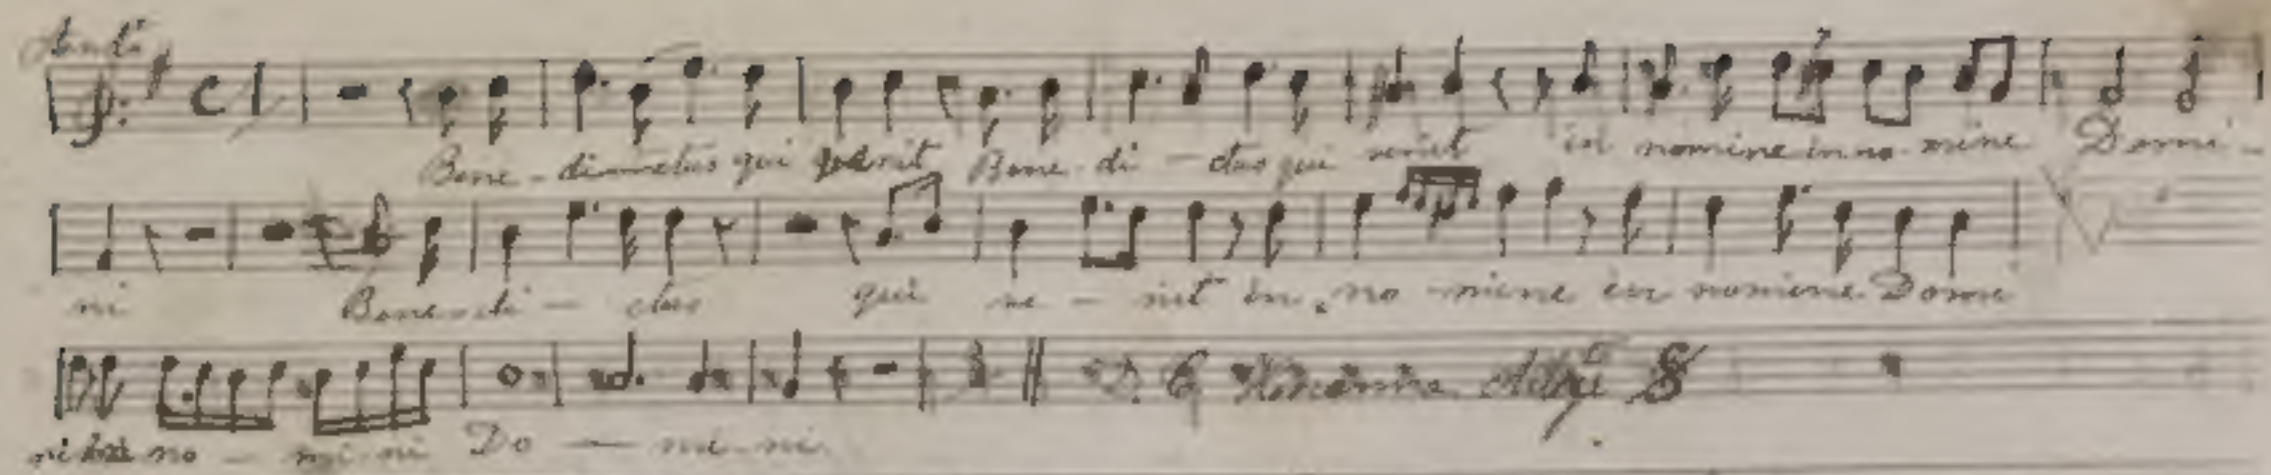 Andte
Bene - di - ctus qui venit Bene - di - ctus qui venit in nomine in no - mine Domi -
ni Bene - di - ctus qui ve - nit in no - mine in nomine Domi
ni in no - mi - ni Do - mi - ni